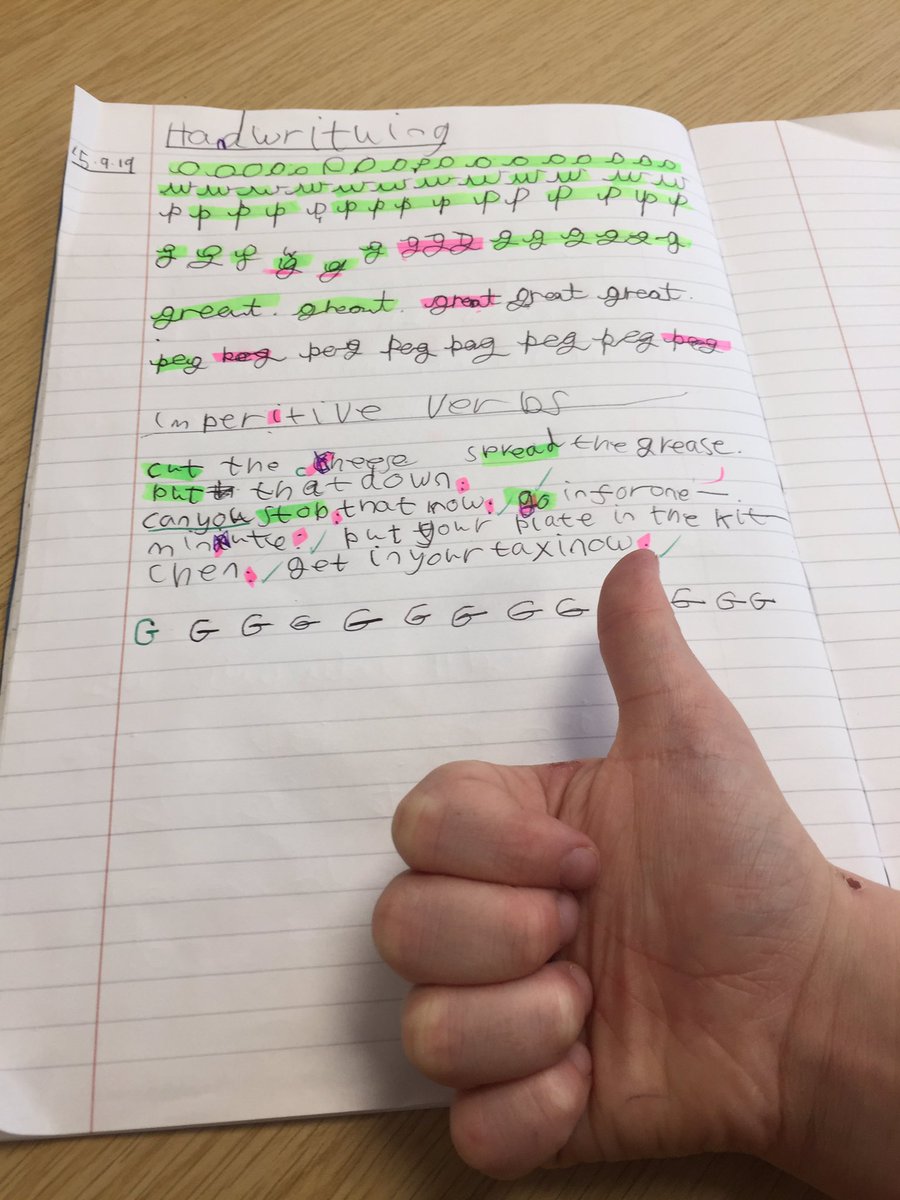 Handwrituing
15.9.19
o o o o o o o o o o o o o o o o
w w w w w w w w w w w w w
p p p p p p p p p p p p p p p
g g g g g g g g g g g g g g g
great. great. great great great.
peg peg peg peg pag peg peg peg
imperitive verbs
cut the cheese spread the grease.
put that down.
can you stop.that now. go in for one
minute. put your plate in the kit
chen. get in your taxi now.
G G G G G G G G G G G